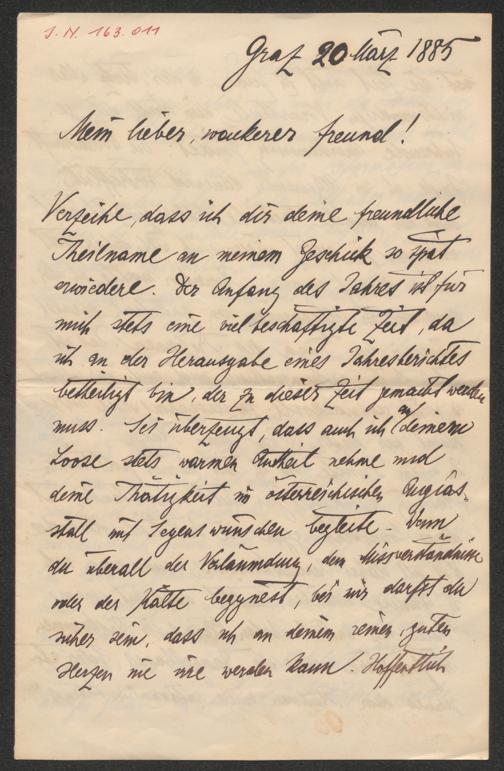 J. N. 163.011
Graz 20 März 1885
Mein lieber, wackerer Freund!
Verzeihe, dass ich dir deine freundliche
Theilname an meinem Geschick so spät
erwiedere. Der Anfang des Jahres ist für
mich stets eine vielbeschäftigte Zeit, da
ich an der Herausgabe eines Jahresberichtes
betheiligt bin, der zu dieser Zeit gemacht werden
muss. Sei überzeugt, dass auch ich an deinem
Loose stets warmen Antheil nehme und
deine Thätigkeit im österreichischen Augias-
stall mit Segenswünschen begleite. Wenn
du überall der Verläumdung, dem Missverständnisse
oder der Kälte begegnest, bei mir darfst du
sicher sein, dass ich an deinem reinen, guten
Herzen nie irre werden kann. Hoffentlich